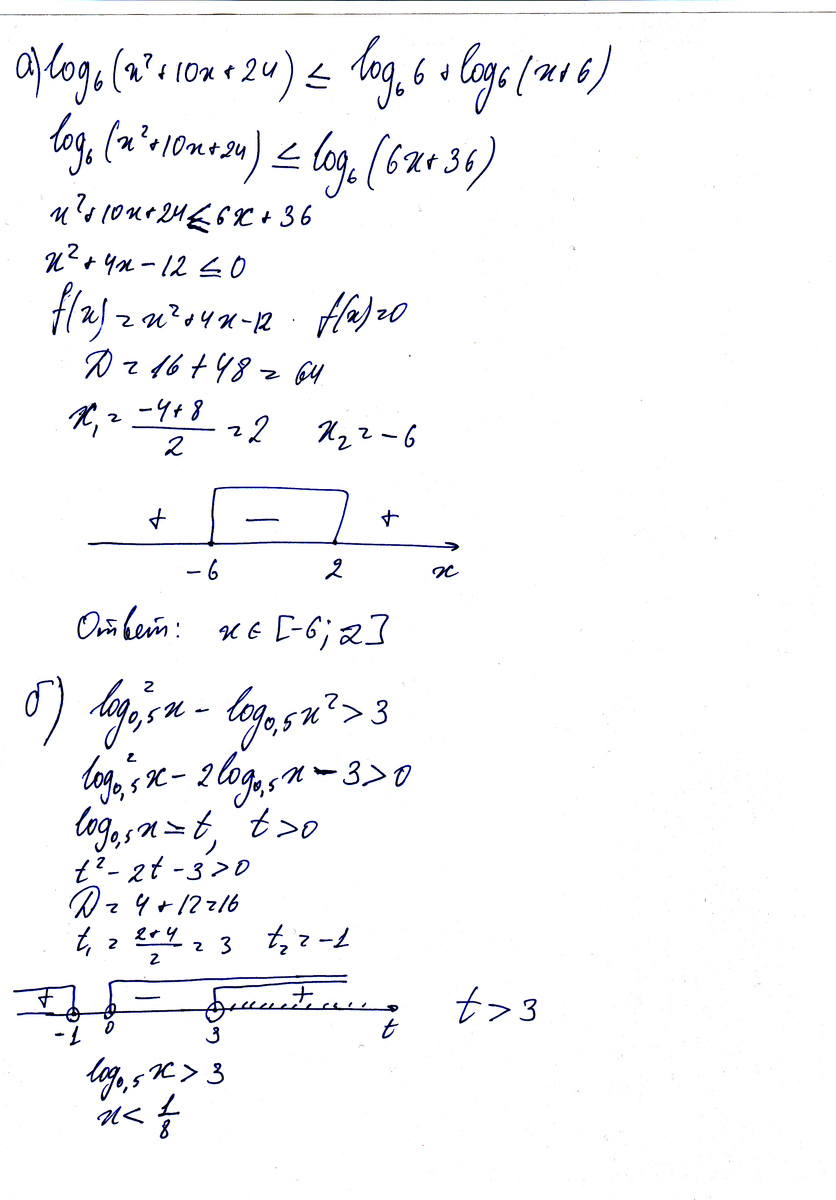 а) log₆(x²+10x+24) ≤ log₆6 + log₆(x+6)
log₆(x²+10x+24) ≤ log₆(6x+36)
x²+10x+24 ≤ 6x+36
x²+4x-12 ≤ 0
f(x) = x²+4x-12 . f(x)=0
D = 16+48 = 64
x₁ = (-4+8)/2 = 2 x₂ = -6
+ − +
-6 2 x
Ответ: x ∈ [-6; 2]
б) log²₀,₅x - log₀,₅x² > 3
log²₀,₅x - 2log₀,₅x - 3 > 0
log₀,₅x = t, t > 0
t² - 2t - 3 > 0
D = 4+12=16
t₁ = (2+4)/2 = 3 t₂ = -1
+ − + t > 3
-1 0 3 t
log₀,₅x > 3
x < 1/8